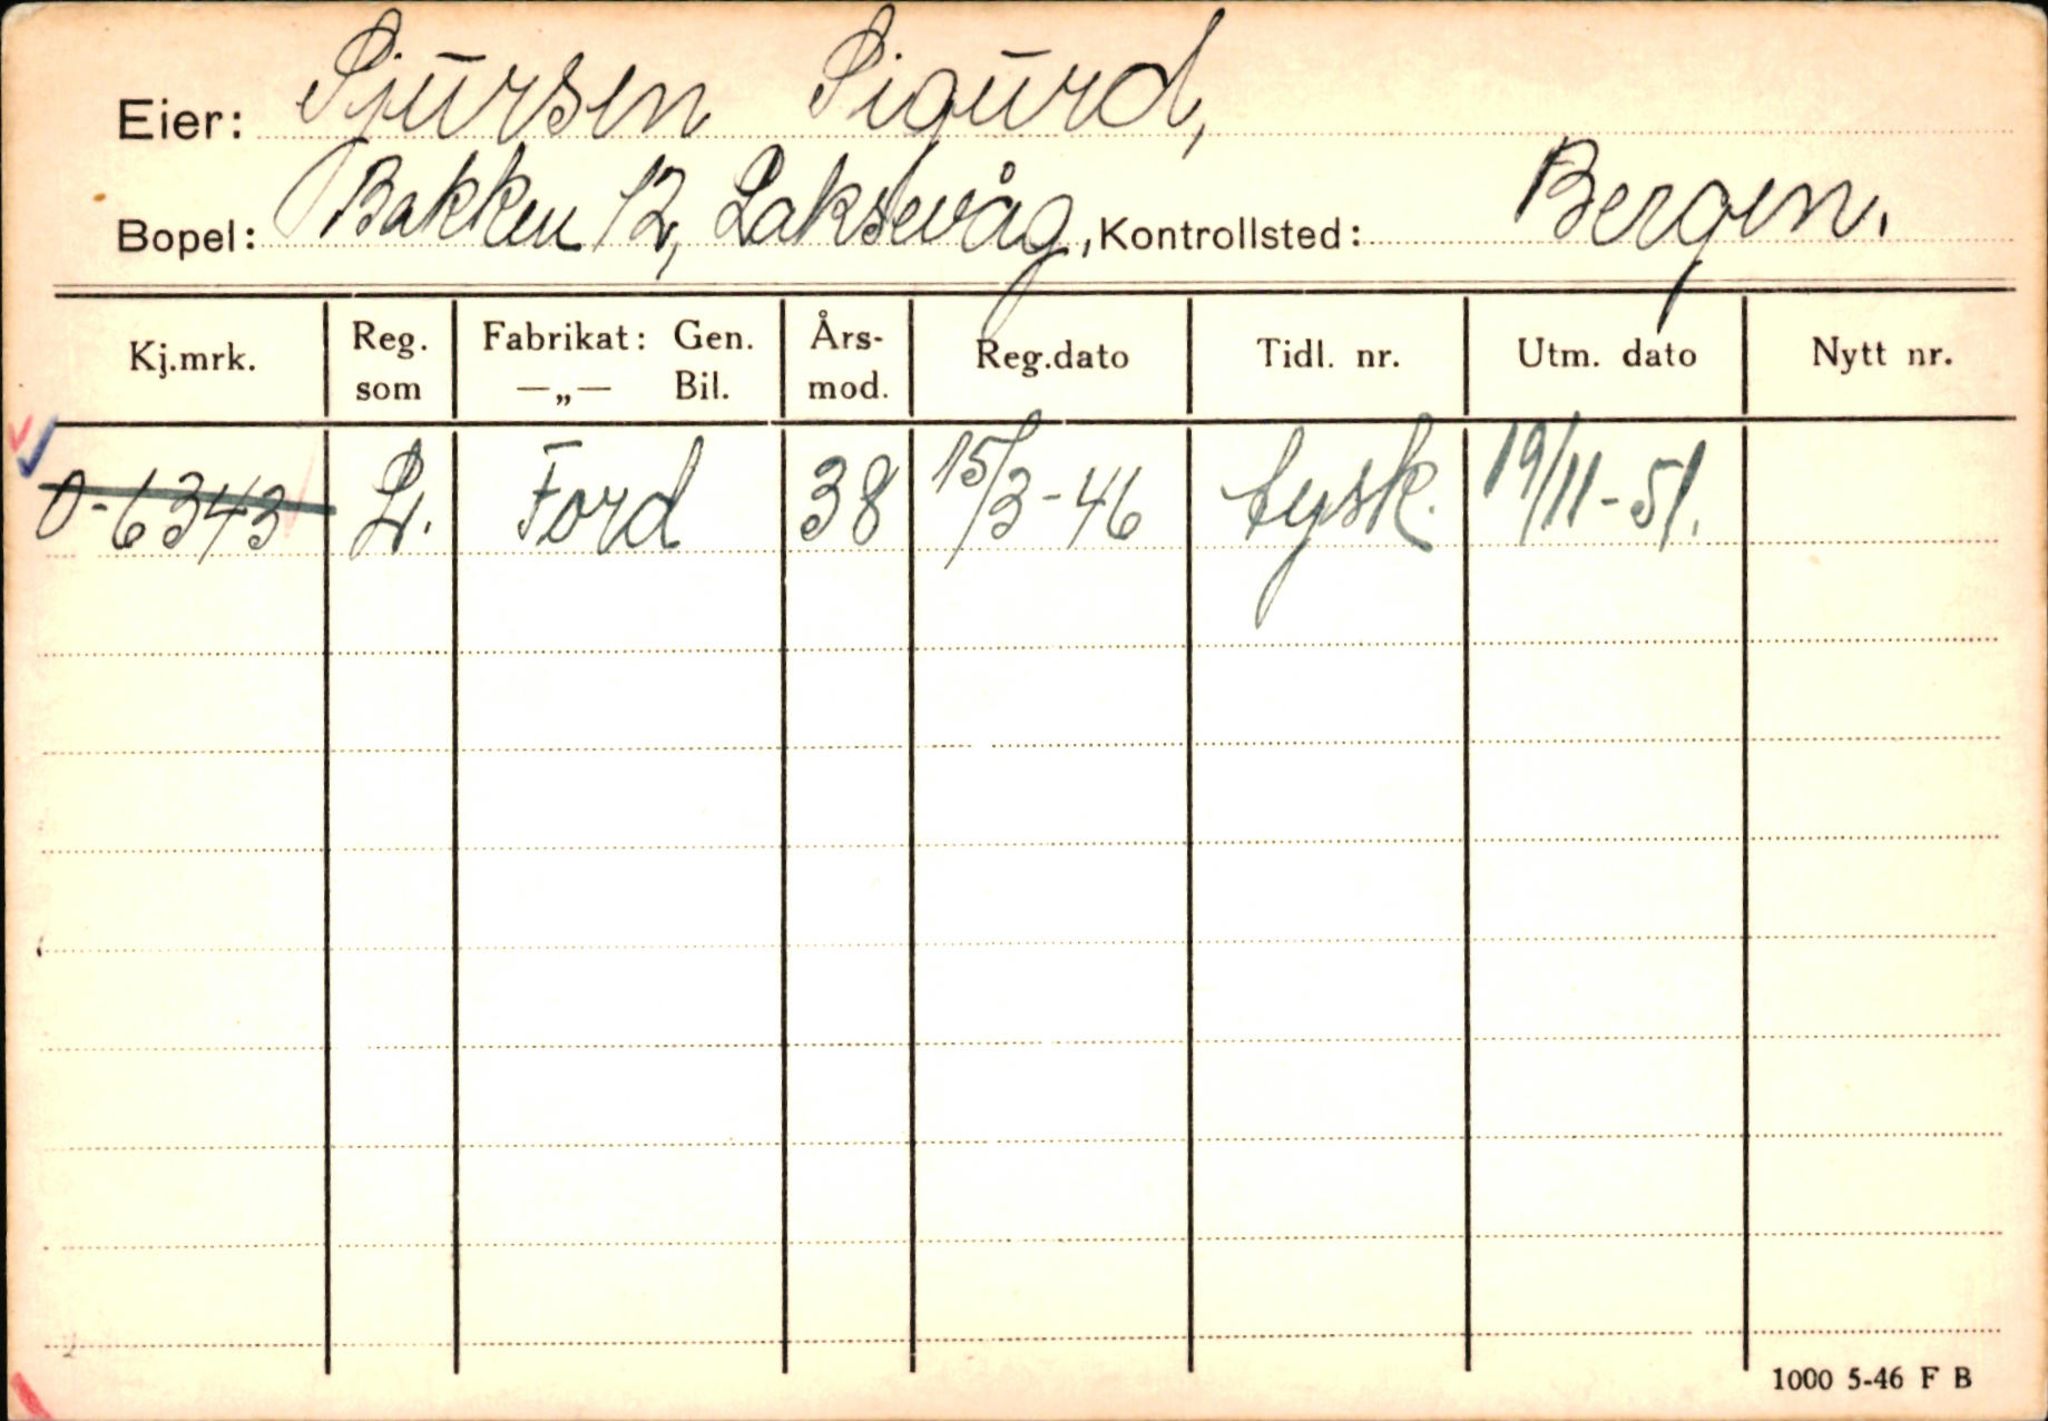 Eier: Sjursen Sigurd,
Bopel: Bakken 12, Laksevåg, Kontrollsted: Bergen.
Kj.mrk. Reg. som Fabrikat: Gen. —„— Bil. Års-mod. Reg.dato Tidl. nr. Utm. dato Nytt nr.
O-6343 L. Ford 38 15/3-46 tysk. 19/11-51.
1000 5-46 F B